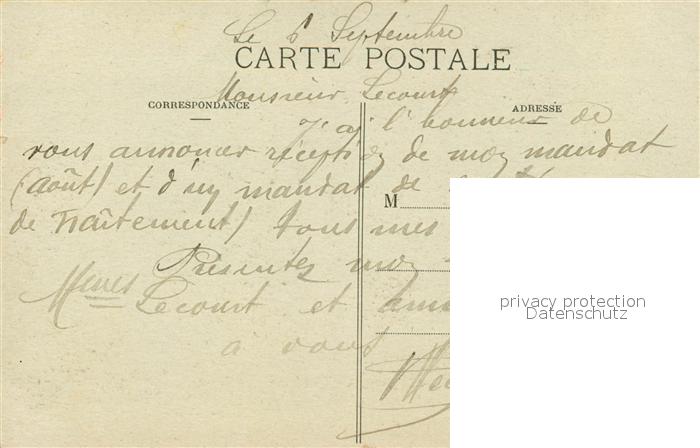 Le 6 Septembre
CARTE POSTALE
Monsieur Lecourt
CORRESPONDANCE
ADRESSE
J'ai l'honneur de
vous annoncer réception de mon mandat
(août) et d'un mandat de
M
de Traitement) tous mes
Présentez mon
Lecourt et
à vous
privacy protection
Datenschutz